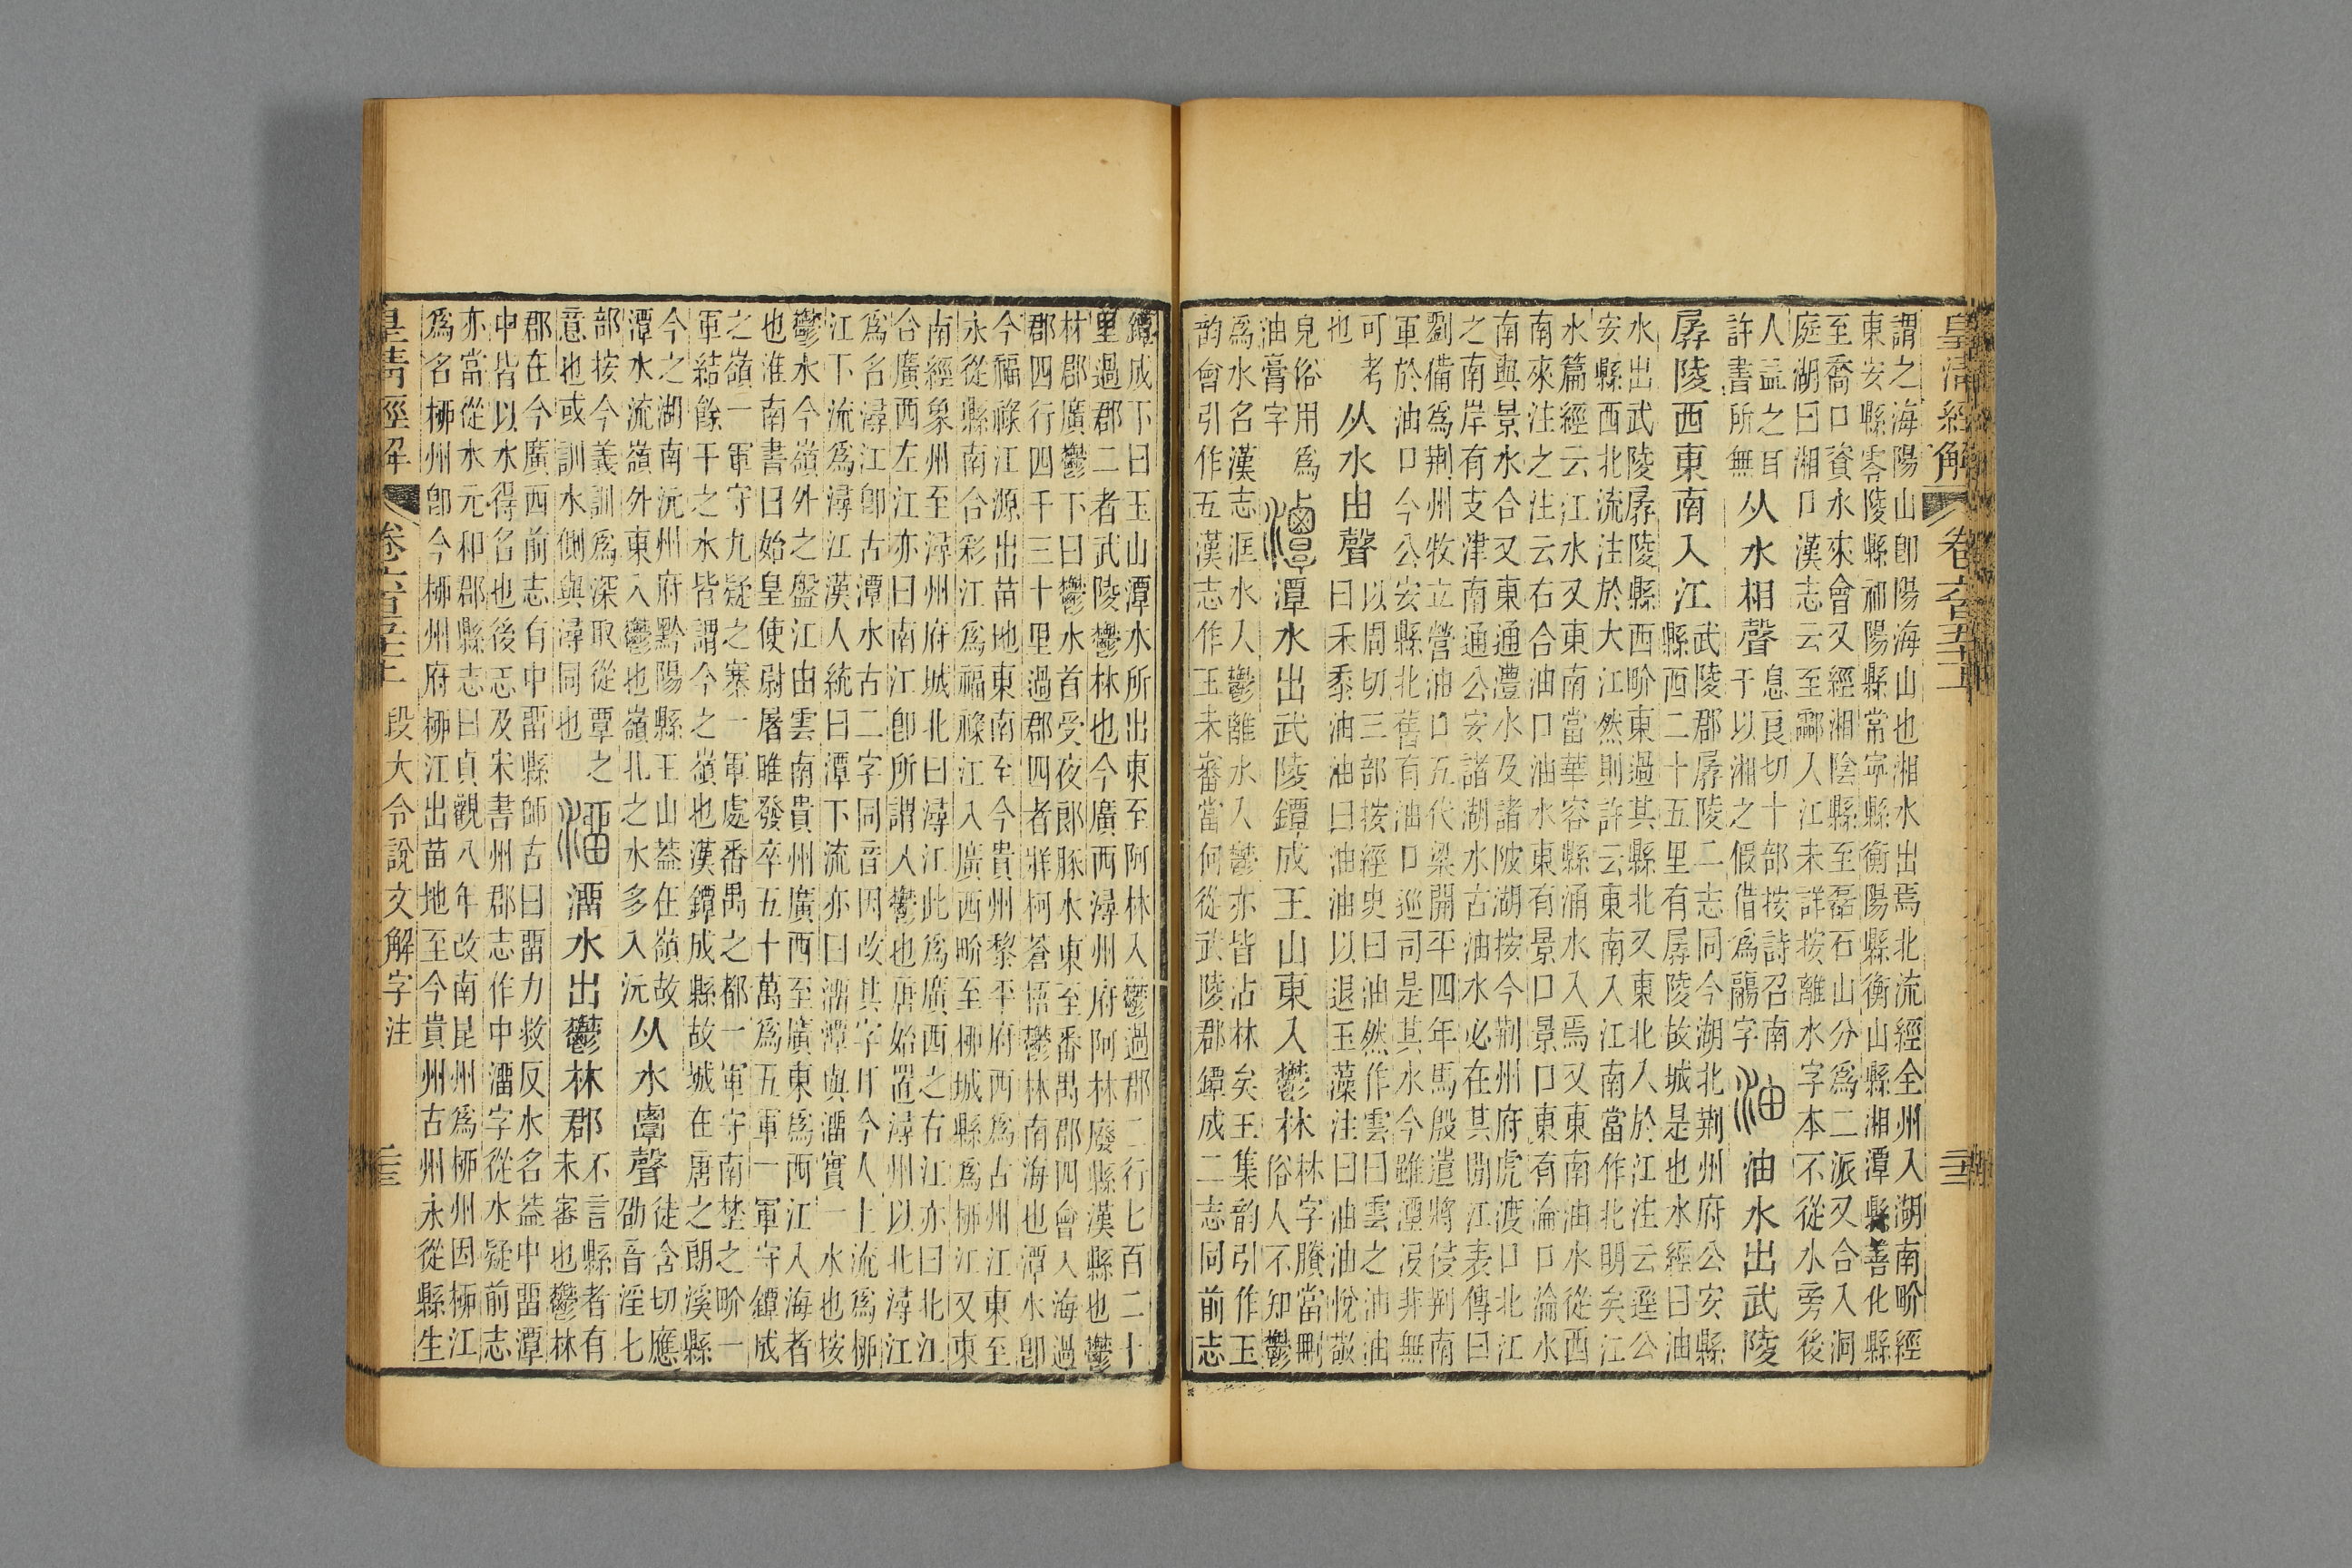 皇清經解 卷六百五十一
謂之海陽山卽陽海山也湘水出焉北流經全州入湖南畍經
東安縣零陵縣祁陽縣常寧縣衡陽縣衡山縣湘潭縣善化縣
至喬口資水來會又經湘陰縣至磊石山分爲二派又合入洞
庭湖曰湘口漢志云至酃入江未詳按離水字本不從水旁後
人益之耳
許書所無
从水相聲
息良切十部按詩召南
于以湘之假借爲鬺字
油 油水出武陵
孱陵西東南入江
武陵郡孱陵二志同今湖北荆州府公安縣
縣西二十五里有孱陵故城是也水經曰油
水出武陵孱陵縣西畍東過其縣北又東北入於江注云逕公
安縣西北流注於大江然則許云東南入江南當作北明矣江
水篇經云江水又東南當華容縣涌水入焉又東南油水從西
南來注之注云右合油口油水東有景口景口東有淪口淪水
南與景水合又東通澧水及諸陂湖按今荆州府虎渡口北江
之南岸有支津南通公安諸湖水古油水必在其閒江表傳曰
劉備爲荆州牧立營油口五代梁開平四年馬殷遣將侵荆南
軍於油口今公安縣北舊有油口巡司是其水今雖湮沒非無
可考
也
从水由聲
以周切三部按經史曰油然作雲曰雲之油油
曰禾黍油油曰油油以退玉藻注曰油油悅敬
皃俗用爲
油膏字
潭 潭水出武陵鐔成王山東入鬱林
林字賸當刪
俗人不知鬱
爲水名漢志洭水入鬱離水入鬱亦皆沾林矣王集韵引作玉
韵會引作五漢志作玉未審當何從武陵郡鐔成二志同前志
鐔成下曰玉山潭水所出東至阿林入鬱過郡二行七百二十
里過郡二者武陵鬱林也今廣西潯州府阿林廢縣漢縣也鬱
林郡廣鬱下曰鬱水首受夜郎豚水東至番禺郡四會入海過
郡四行四千三十里過郡四者牂柯蒼梧鬱林南海也潭水卽
今福祿江源出苗地東南至今貴州黎平府西爲古州江東至
永從縣南合彩江爲福祿江入廣西畍至柳城縣爲柳江又東
南經象州至潯州府城北曰潯江此爲廣西之右江亦曰北江
合廣西左江亦曰南江卽所謂入鬱也唐始置潯州以北潯江
爲名潯江卽古潭水古二字同音因改其字耳今人上流爲柳
江下流爲潯江漢人統曰潭下流亦曰溜潭與溜實一水也按
鬱水今嶺外之盤江由雲南貴州廣西至廣東爲西江入海者
也淮南書曰始皇使尉屠睢發卒五十萬爲五軍一軍守鐔成
之嶺一軍守九疑之塞一軍處番禺之都一軍守南埜之畍一
軍結餘干之水皆謂今之嶺也漢鐔成縣故城在唐之朗溪縣
今之湖南沅州府黔陽縣王山葢在嶺故
潭水流嶺外東入鬱也嶺北之水多入沅
从水覃聲
徒含切應
劭音淫七
部按今義訓爲深取從覃之
意也或訓水側與潯同也
溜 溜水出鬱林郡
不言縣者有
未審也鬱林
郡在今廣西前志有中留縣師古曰留力救反水名葢中留潭
中皆以水得名也後志及宋書州郡志作中溜字從水疑前志
亦當從水元和郡縣志曰貞觀八年改南昆州爲柳州因柳江
爲名柳州卽今柳州府柳江出苗地至今貴州古州永從縣生
皇清經解 卷六百五十一 段大令說文解字注